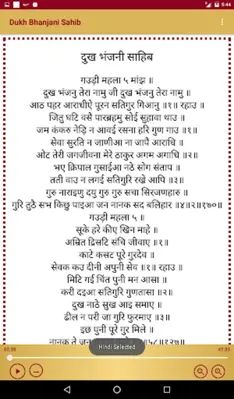 8:44
Dukh Bhanjani Sahib
दुख भंजनी साहिब
गउड़ी महला ५ मांझ ॥
दुख भंजनु तेरा नामु जी दुख भंजनु तेरा नामु ॥
आठ पहर आराधीऐ पूरन सतिगुर गिआनु ॥१॥ रहाउ ॥
जितु घटि वसै पारब्रहमु सोई सुहावा थाउ ॥
जम कंकरु नेड़ि न आवई रसना हरि गुण गाउ ॥१॥
सेवा सुरति न जाणीआ ना जापै आराधि ॥
ओट तेरी जगजीवना मेरे ठाकुर अगम अगाधि ॥२॥
भए क्रिपाल गुसाईआ नठे सोग संताप ॥
तती वाउ न लगई सतिगुरि रखे आपि ॥३॥
गुरु नाराइणु दयु गुरु गुरु सचा सिरजणहारु ॥
गुरि तुठै सभ किछु पाइआ जन नानक सद बलिहार ॥४॥२॥१७०॥
गउड़ी महला ५ ॥
सूके हरे कीए खिन माहे ॥
अम्रित द्रिसटि संचि जीवाए ॥१॥
काटे कसट पूरे गुरदेव ॥
सेवक कउ दीनी अपुनी सेव ॥१॥ रहाउ ॥
मिटि गई चिंत पुनी मन आसा ॥
करी दइआ सतिगुरि गुणतासा ॥२॥
दुख नाठे सुख आइ समाए ॥
ढील न परी जा गुरि फुरमाए ॥३॥
इछ पुनी पूरे गुर मिले ॥
नानक ते जन
Hindi Selected